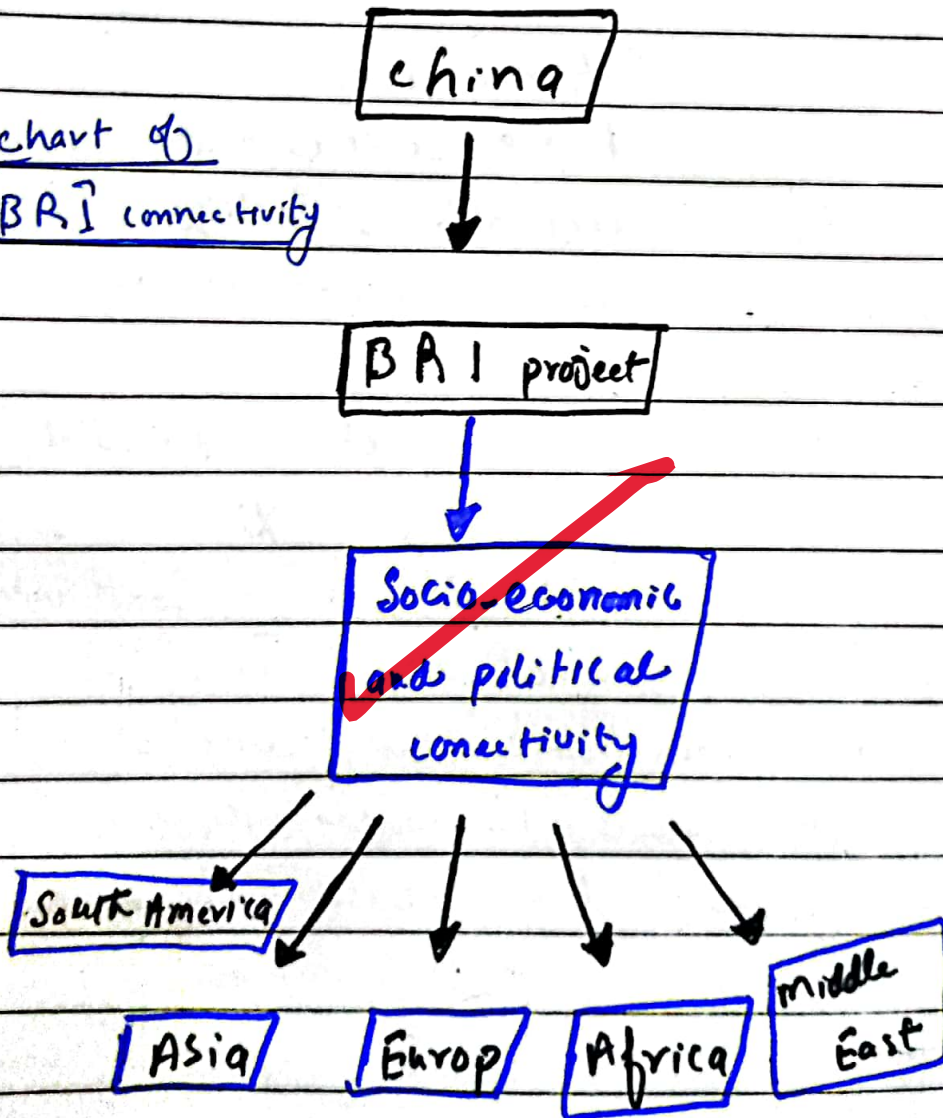 china
chart of
BRI connectivity
BRI project
Socio-economic
and political
conectivity
South America
Asia
Europ
Africa
Middle
East